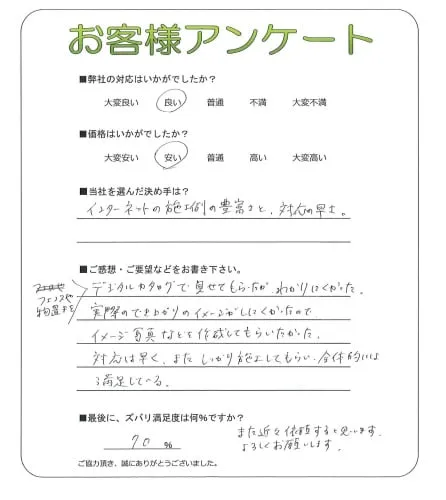 お客様アンケート
■弊社の対応はいかがでしたか？
大変良い 良い 普通 不満 大変不満
■価格はいかがでしたか？
大変安い 安い 普通 高い 大変高い
■当社を選んだ決め手は？
インターネットの施工例の豊富さと、対応の早さ。
■ご感想・ご要望などをお書き下さい。
フェンスや
物置を
デジタルカタログで見せてもらったが、わかりにくかった。
実際のできあがりのイメージがしにくかったので
イメージ写真などを作成してもらいたかった。
対応は早く、また しっかり施工してもらい、全体的には
満足している。
■最後に、ズバリ満足度は何%ですか？
70 %
また近々依頼すると思います。
よろしくお願いします。
ご協力頂き、誠にありがとうございました。